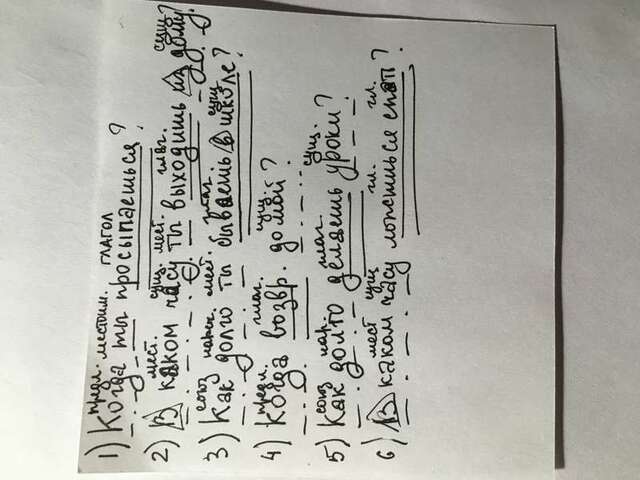 предл. местоим. ГЛАГОЛ
1) Когда ты просыпаешься?
мест. сущ. мест. глаг. сущ.
2) В каком часу ты выходишь из дому?
союз нареч. мест. глаг. сущ.
3) Как долго ты бываешь в школе?
предл. глаг. сущ.
4) Когда возвр. домой?
союз нар. глаг. сущ.
5) Как долго делаешь уроки?
мест сущ гл. гл.
6) В каком часу ложишься спать?